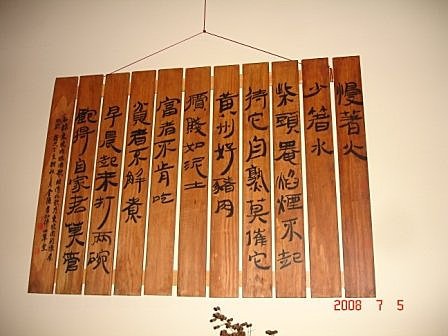 慢著火
少著水
柴頭罨焰煙不起
待它自熟莫催它
黃州好豬肉
價賤如泥土
富者不肯吃
貧者不解煮
早晨起來打兩碗
飽得自家君莫管
2008 7 5